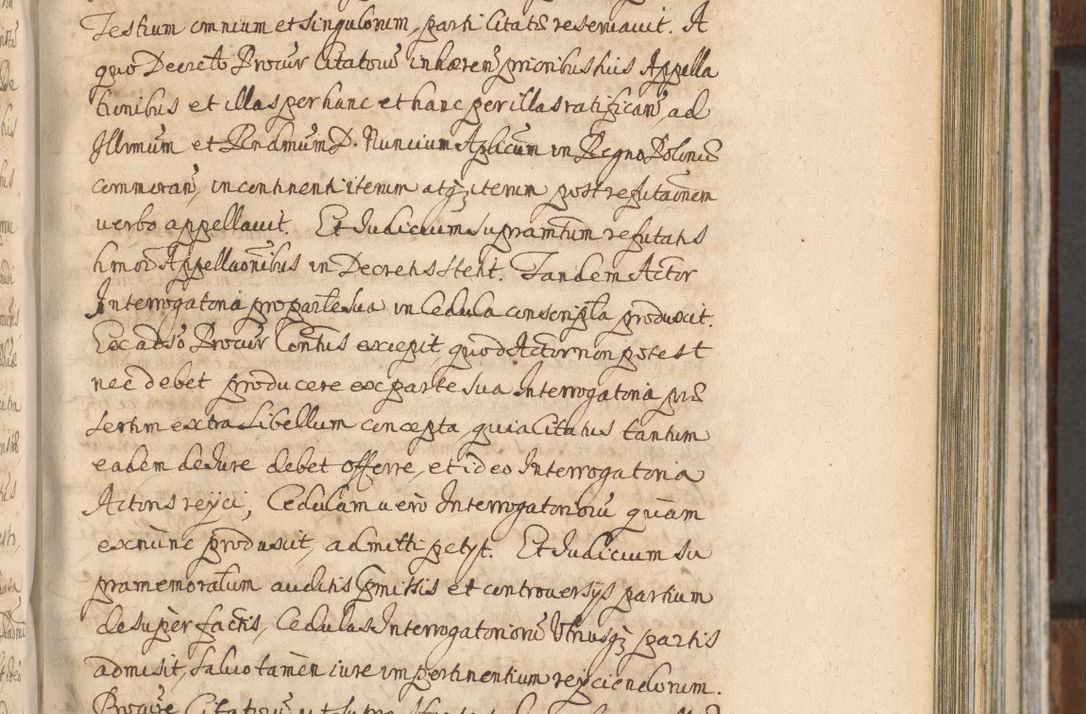 Testium omnium et singulorum, parti Citatae reservavit. A
quo Decreto Procur Citatorum inhaeren prioribus huis Appella
tionibus et illas per hanc et hanc per illas ratifican ad
Illmum et Rndmum D. Nuncium Aplicum in Regno Poloniae
commoran, in continenti iterum atq iterum post refutaonem
verbo appellavit. Et Judicium supramtum refutatis
hmoi Appellaonibus in Decretis stetit. Tandem Actor
Interrogatoria pro parte sua in Cedula conscripta produxit.
Ex adso Procur Contus excepit, quod Actor non potest
nec debet producere ex parte sua Interrogatoria prae
sertim extra Libellum concepta, quia Citatus tantum
eadem de Jure debet offerre, et ideo Interrogatoria
Actoris reyci, Cedulam vero Interrogatoriorum quam
ex nunc produxit, admitti petyt. Et Judicium su
pramemoratum auditis Praemissis et controversys partium
desuper factis, Cedulas Interrogatoriorum Utriusq partis
admisit, salvo tamen iure impertinentium reyciendorum.